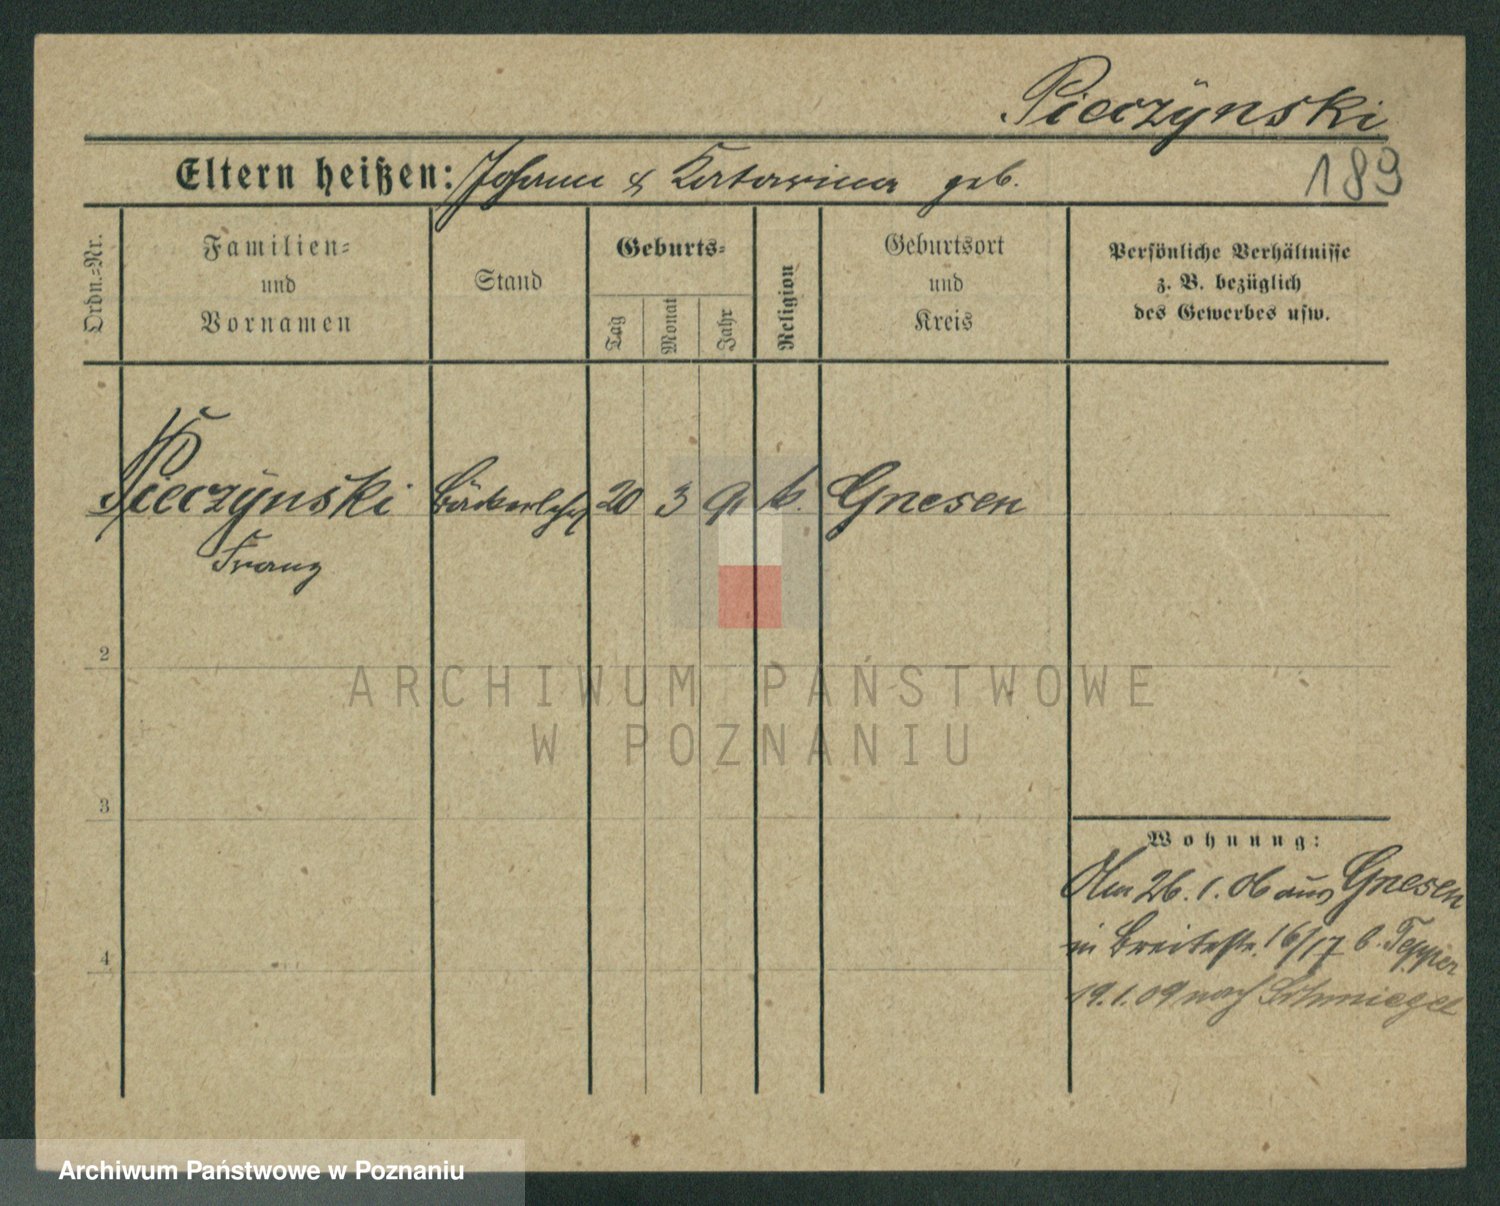 Pieczÿnski
Eltern heißen: Johann & Katarina geb.
189
Ordn.=Nr.
Familien=
und
Vornamen
Stand
Geburts=
Tag
Monat
Jahr
Religion
Geburtsort
und
Kreis
Persönliche Verhältnisse
z. B. bezüglich
des Gewerbes usw.
Pieczÿnski Bäckerlehrl 20 3 91 k. Gnesen
Franz
2
3
4
Wohnung:
Am 26.1.06 aus Gnesen
in Breitestr. 16/17 b. Tepper
19.1.09 nach Schmiegel
ARCHIWUM PAŃSTWOWE
W POZNANIU
Archiwum Państwowe w Poznaniu